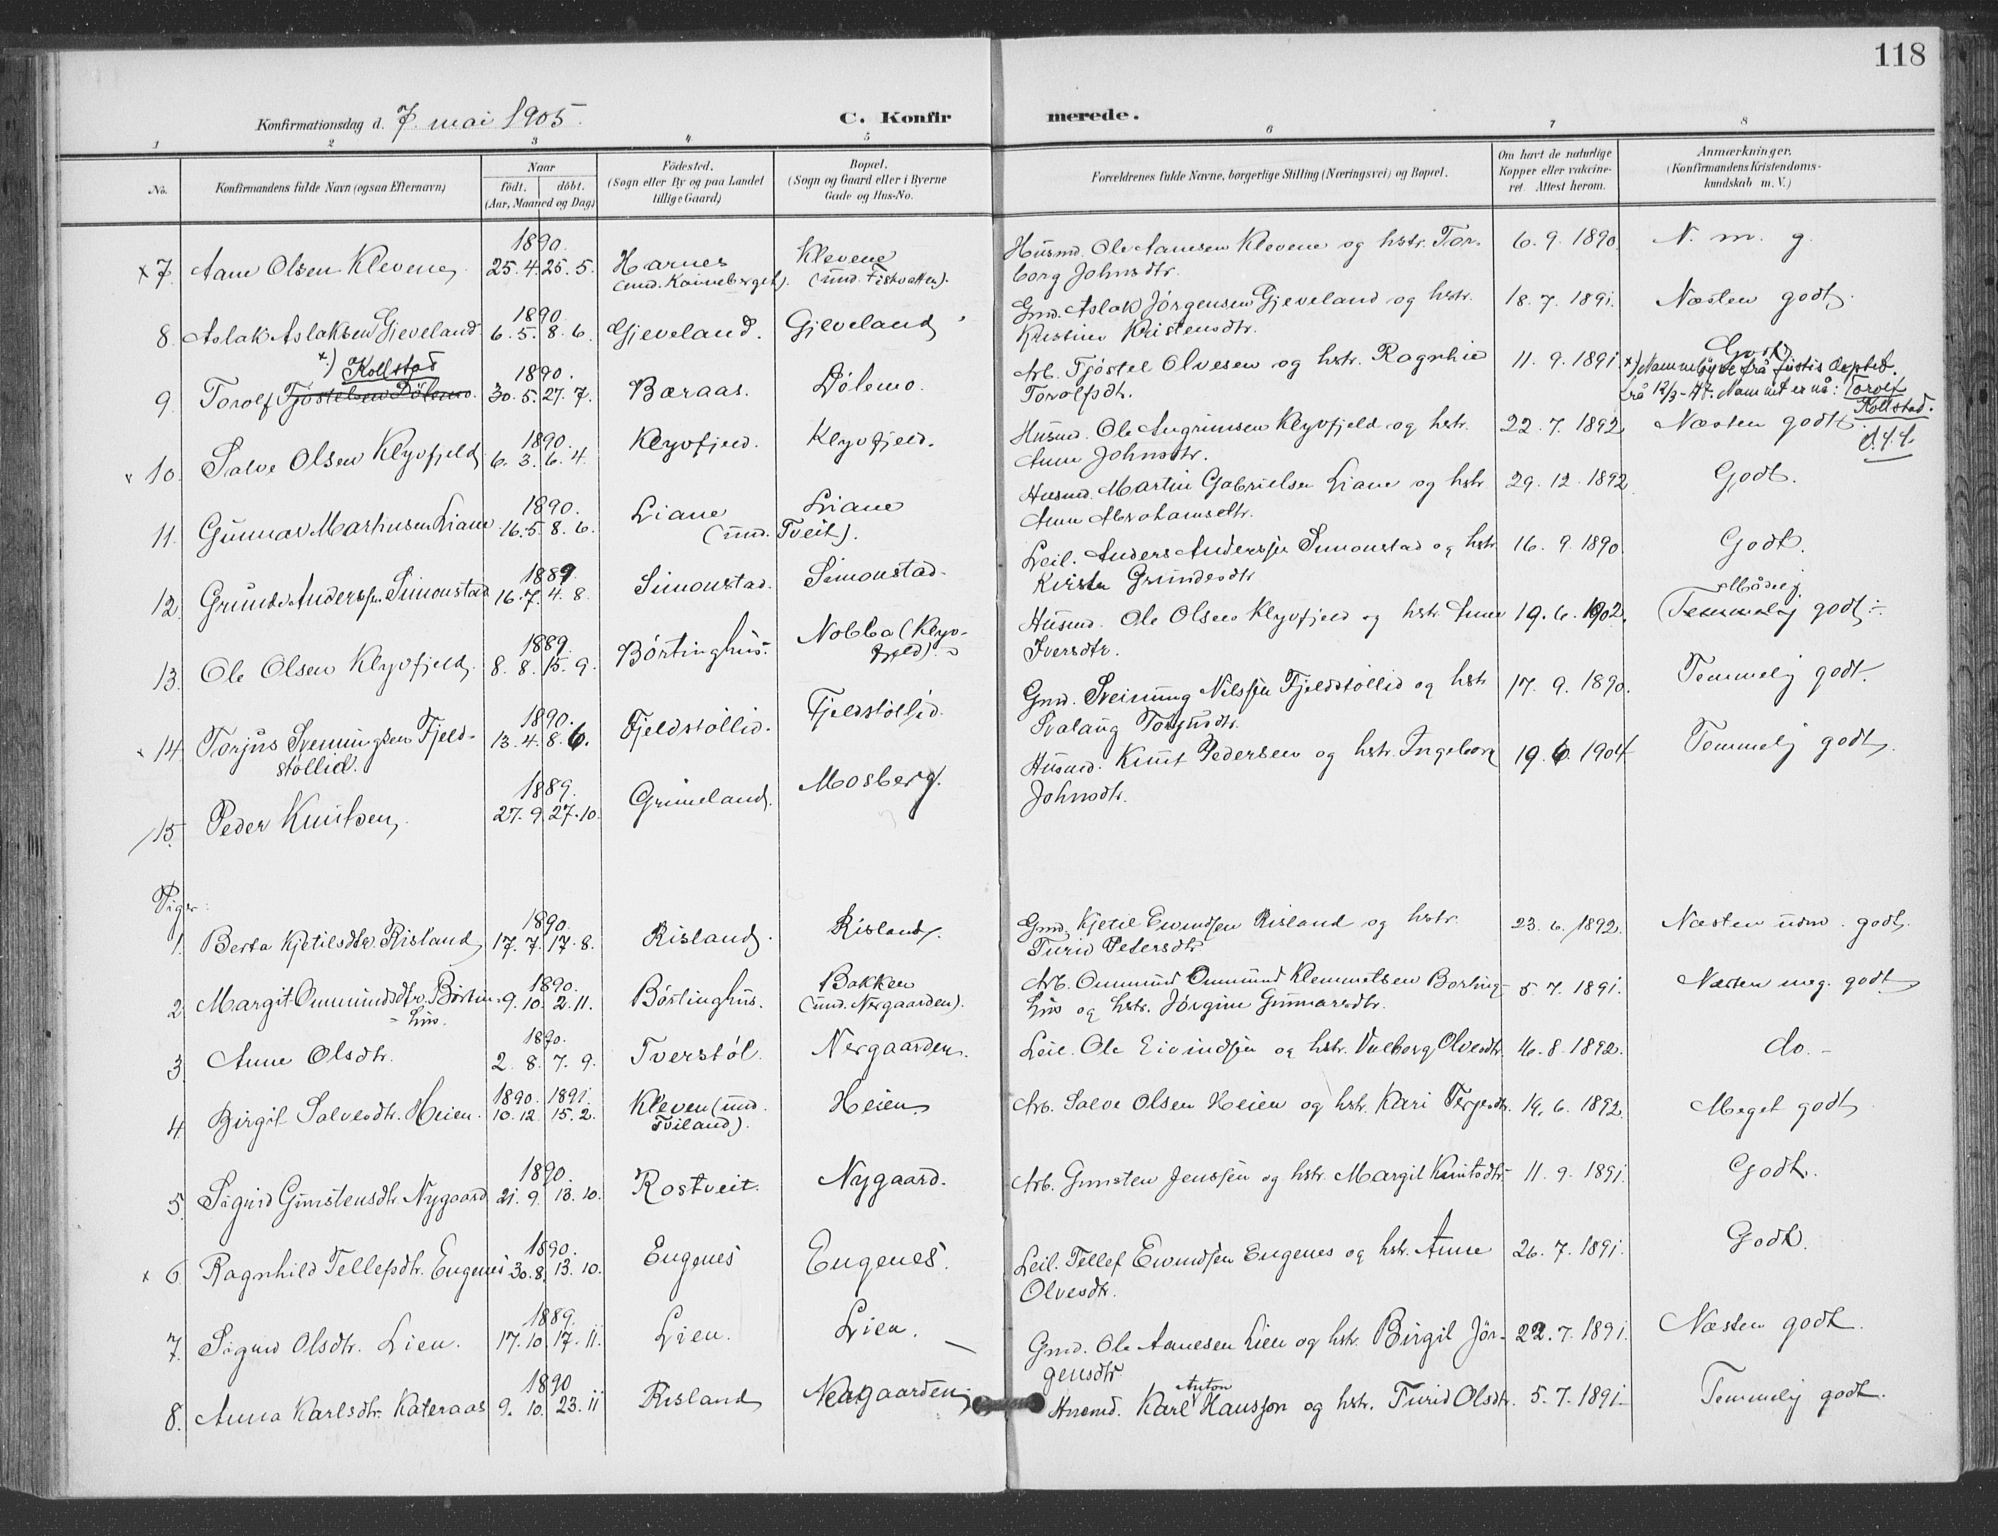 118
Konfirmationsdag d. 7. mai 1905.
C. Konfir
merede.
1 2 3 4 5 6 7 8
No.
Konfirmandens fulde Navn (ogsaa Efternavn)
Naar
födt. döbt.
(Aar, Maaned og Dag)
Födested.
(Sogn eller By og paa Landet
tillige Gaard)
Bopæl.
(Sogn og Gaard eller i Byerne
Gade og Hus-No.
Forældrenes fulde Navne, borgerlige Stilling (Næringsvei) og Bopæl.
Om havt de naturlige
Kopper eller vakcine-
ret. Attest herom.
Anmærkninger.
(Konfirmandens Kristendoms-
kundskab m. V.)
1890.
x 7. Aane Olsen Klevene, 25. 4. 25. 5. Harnes Klevene Husmd. Ole Aanesen Klevene og hstr. Tor- 6. 9. 1890. N. m. g.
(und. Fiskvatten). borg Johnsdtr.
1890.
8. Aslak Aslaksen Gjeveland. 6. 5. 8. 6. Gjeveland. Gjeveland Gmd. Aslak Jörgensen Gjeveland og hstr. 18. 7. 1891. Næsten godt.
Kristine Kristensdtr.
x) Kollstad
1890.
9. Torolf Fjöstelsen Dölemo. 30. 5. 27. 7. Bæraas. Dölemo. Arb. Fjöstel Olvesen og hstr. Ragnhild 11. 9. 1891. Godt
Torolfsdtr.
x) Namneløyve frå Justis Deptet.
frå 12/3-47. Namnet er nå: Torolf
Kollstad.
1890.
x 10. Salve Olsen Klyvfjeld. 6. 3. 6. 4. Klyvfjeld. Klyvfjeld. Husmd. Ole Angrimsen Klyvfjeld og hstr. 22. 7. 1892. Næsten godt.
Anne Johnsdtr.
1890.
11. Gunnar Martinusen Liane 16. 5. 8. 6. Liane Liane Husmd. Martin Gabrielsen Liane og hstr 29. 12. 1892. Godt.
(und. Tveit). Anne Abrahamsdtr.
1889.
12. Grunde Anderssen Simonstad 16. 7. 4. 8. Simonstad. Simonstad. Leil. Anders Anderssen Simonstad og hstr 16. 9. 1890. Godt.
Kirsten Grundesdtr
1889.
13. Ole Olsen Klyvfjeld. 8. 8. 15. 9. Børtinghus. Nobba (Klyv-
fjeld). Husmd. Ole Olsen Klyvfjeld og hstr. Anne 19. 6. 1902. Mådelig
Iversdtr. Temmelig godt.
1890.
x 14. Torjus Sveinungsen Fjeld- 13. 4. 8. 6. Fjeldstöllid. Fjeldstöllid. Gmd. Sveinung Nilssen Fjeldstöllid og hstr 17. 9. 1890. Temmelig godt.
stöllid. Svalaug Torjusdtr.
1889.
15. Peder Knutsen, 27. 9. 27. 10. Grimeland. Mosberg. Husmd. Knut Pedersen og hstr. Ingeborg 19. 6. 1904. Temmelig godt.
Johnsdtr.
Piger:
1890.
1. Berta Kjetilsdtr. Risland 17. 7. 17. 8. Risland. Risland. Gmd. Kjetil Eivindsen Risland og hstr. 23. 6. 1892. Næsten udm. godt.
Turid Petersdtr
1890.
2. Margit Ommundsdtr. Börtin- 9. 10. 2. 11. Börtinghus. Bakken Arb. Ommund Ommund Klemmetsen Borting- 5. 7. 1891. Næsten meg. godt
hus. (und. Nergaarden). hus og hstr. Jörgine Gunnarsdtr.
1890.
3. Anne Olsdtr. 2. 8. 7. 9. Tverstöl. Nergaarden. Leil. Ole Eivindsen og hstr. Valborg Olvesdtr. 16. 8. 1892. do. -
1890. 1891.
4. Birgit Salvesdtr. Heien. 10. 12. 15. 2. Kleven (und. Heien. Arb. Salve Olsen Heien og hstr. Kari Terjesdtr. 14. 6. 1892. Meget godt
Tviland).
1890.
5. Sigrid Gunstensdtr. Nygaard 21. 9. 13. 10. Rostveit. Nygaard. Arb. Gunsten Jenssen og hstr. Margit Knutsdtr. 11. 9. 1891. Godt.
1890.
x 6. Ragnhild Tellefsdtr. Eugenes 30. 8. 13. 10. Eugenes Eugenes. Leil. Tellef Eivindsen Eugenes og hstr. Anne 26. 7. 1891. Godt.
Olvesdtr.
1889.
7. Sigrid Olsdtr. Lien. 17. 10. 17. 11. Lien. Lien. Gmd. Ole Aanesen Lien og hstr. Birgit Jör- 22. 7. 1891. Næsten godt.
gensdtr
1890
8. Anna Karlsdtr. Kateraas 9. 10. 23. 11 Risland Nergaarden. Husmd. Karl Anton Hansson og hstr. Turid Olsdtr. 5. 7. 1891. Temmelig godt.